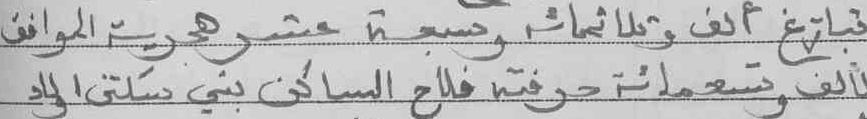 بتاريخ ألف وثلاثمائة وسبعة عشر هجرية الموافق
لألف وتسعمائة حرفته فلاح الساكن بني سكتن الواد